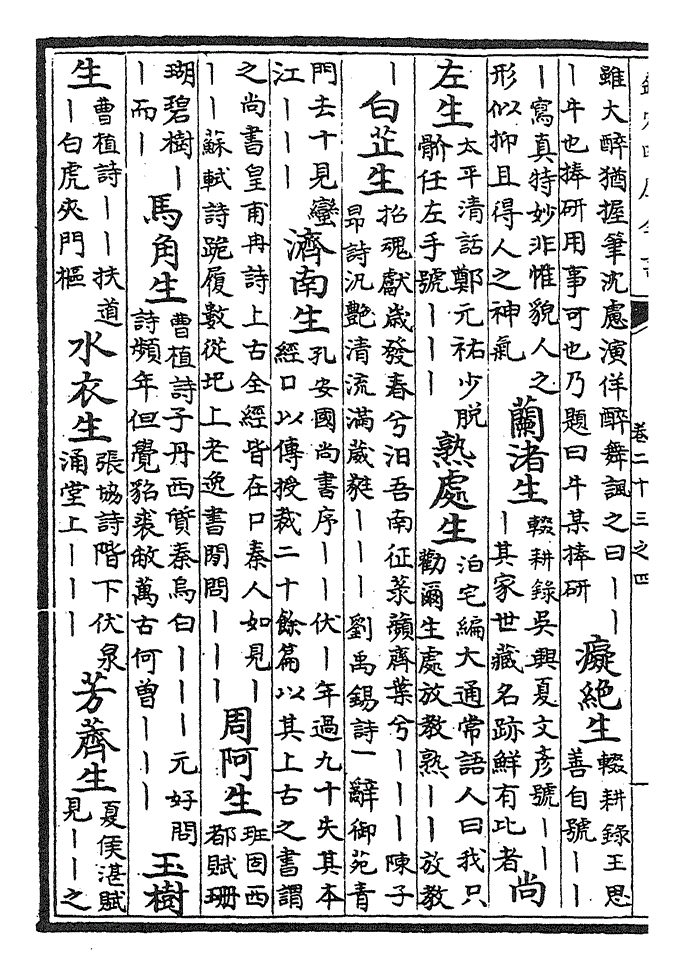 欽定四庫全書 卷二十三之四 一
雖大醉猶握筆沈慮演佯醉舞諷之曰丨丨
丨牛也捧研用事可也乃題曰牛某捧研
癡絕生
輟耕錄王思
善自號丨丨
丨寫真特妙非惟貌人之
形似抑且得人之神氣
蘭渚生
輟耕錄吳興夏文彥號丨丨
丨其家世藏名跡鮮有比者
尚
左生
太平清話鄭元祐少脫
骱任左手號丨丨丨
熟處生
泊宅編大通常語人曰我只
勸爾生處放教熟丨丨放教
丨
白芷生
招魂獻歲發春兮汩吾南征菉蘋齊葉兮丨丨丨陳子
昂詩汎艷清流滿葳蕤丨丨丨劉禹錫詩一辭御苑青
門去十見蠻
江丨丨丨
濟南生
孔安國尚書序丨丨伏丨年過九十失其本
經口以傳授裁二十餘篇以其上古之書謂
之尚書皇甫冉詩上古全經皆在口秦人如見丨
丨丨蘇軾詩跪履數從圯上老逸書閒問丨丨丨
周阿生
班固西
都賦珊
瑚碧樹丨
丨而丨
馬角生
曹植詩子丹西質秦烏白丨丨丨元好問
詩頻年但覺貂裘敝萬古何曾丨丨丨
玉樹
生
曹植詩丨丨扶道
丨白虎夾門樞
水衣生
張協詩階下伏泉
涌堂上丨丨丨
芳薺生
夏侯湛賦
見丨丨之